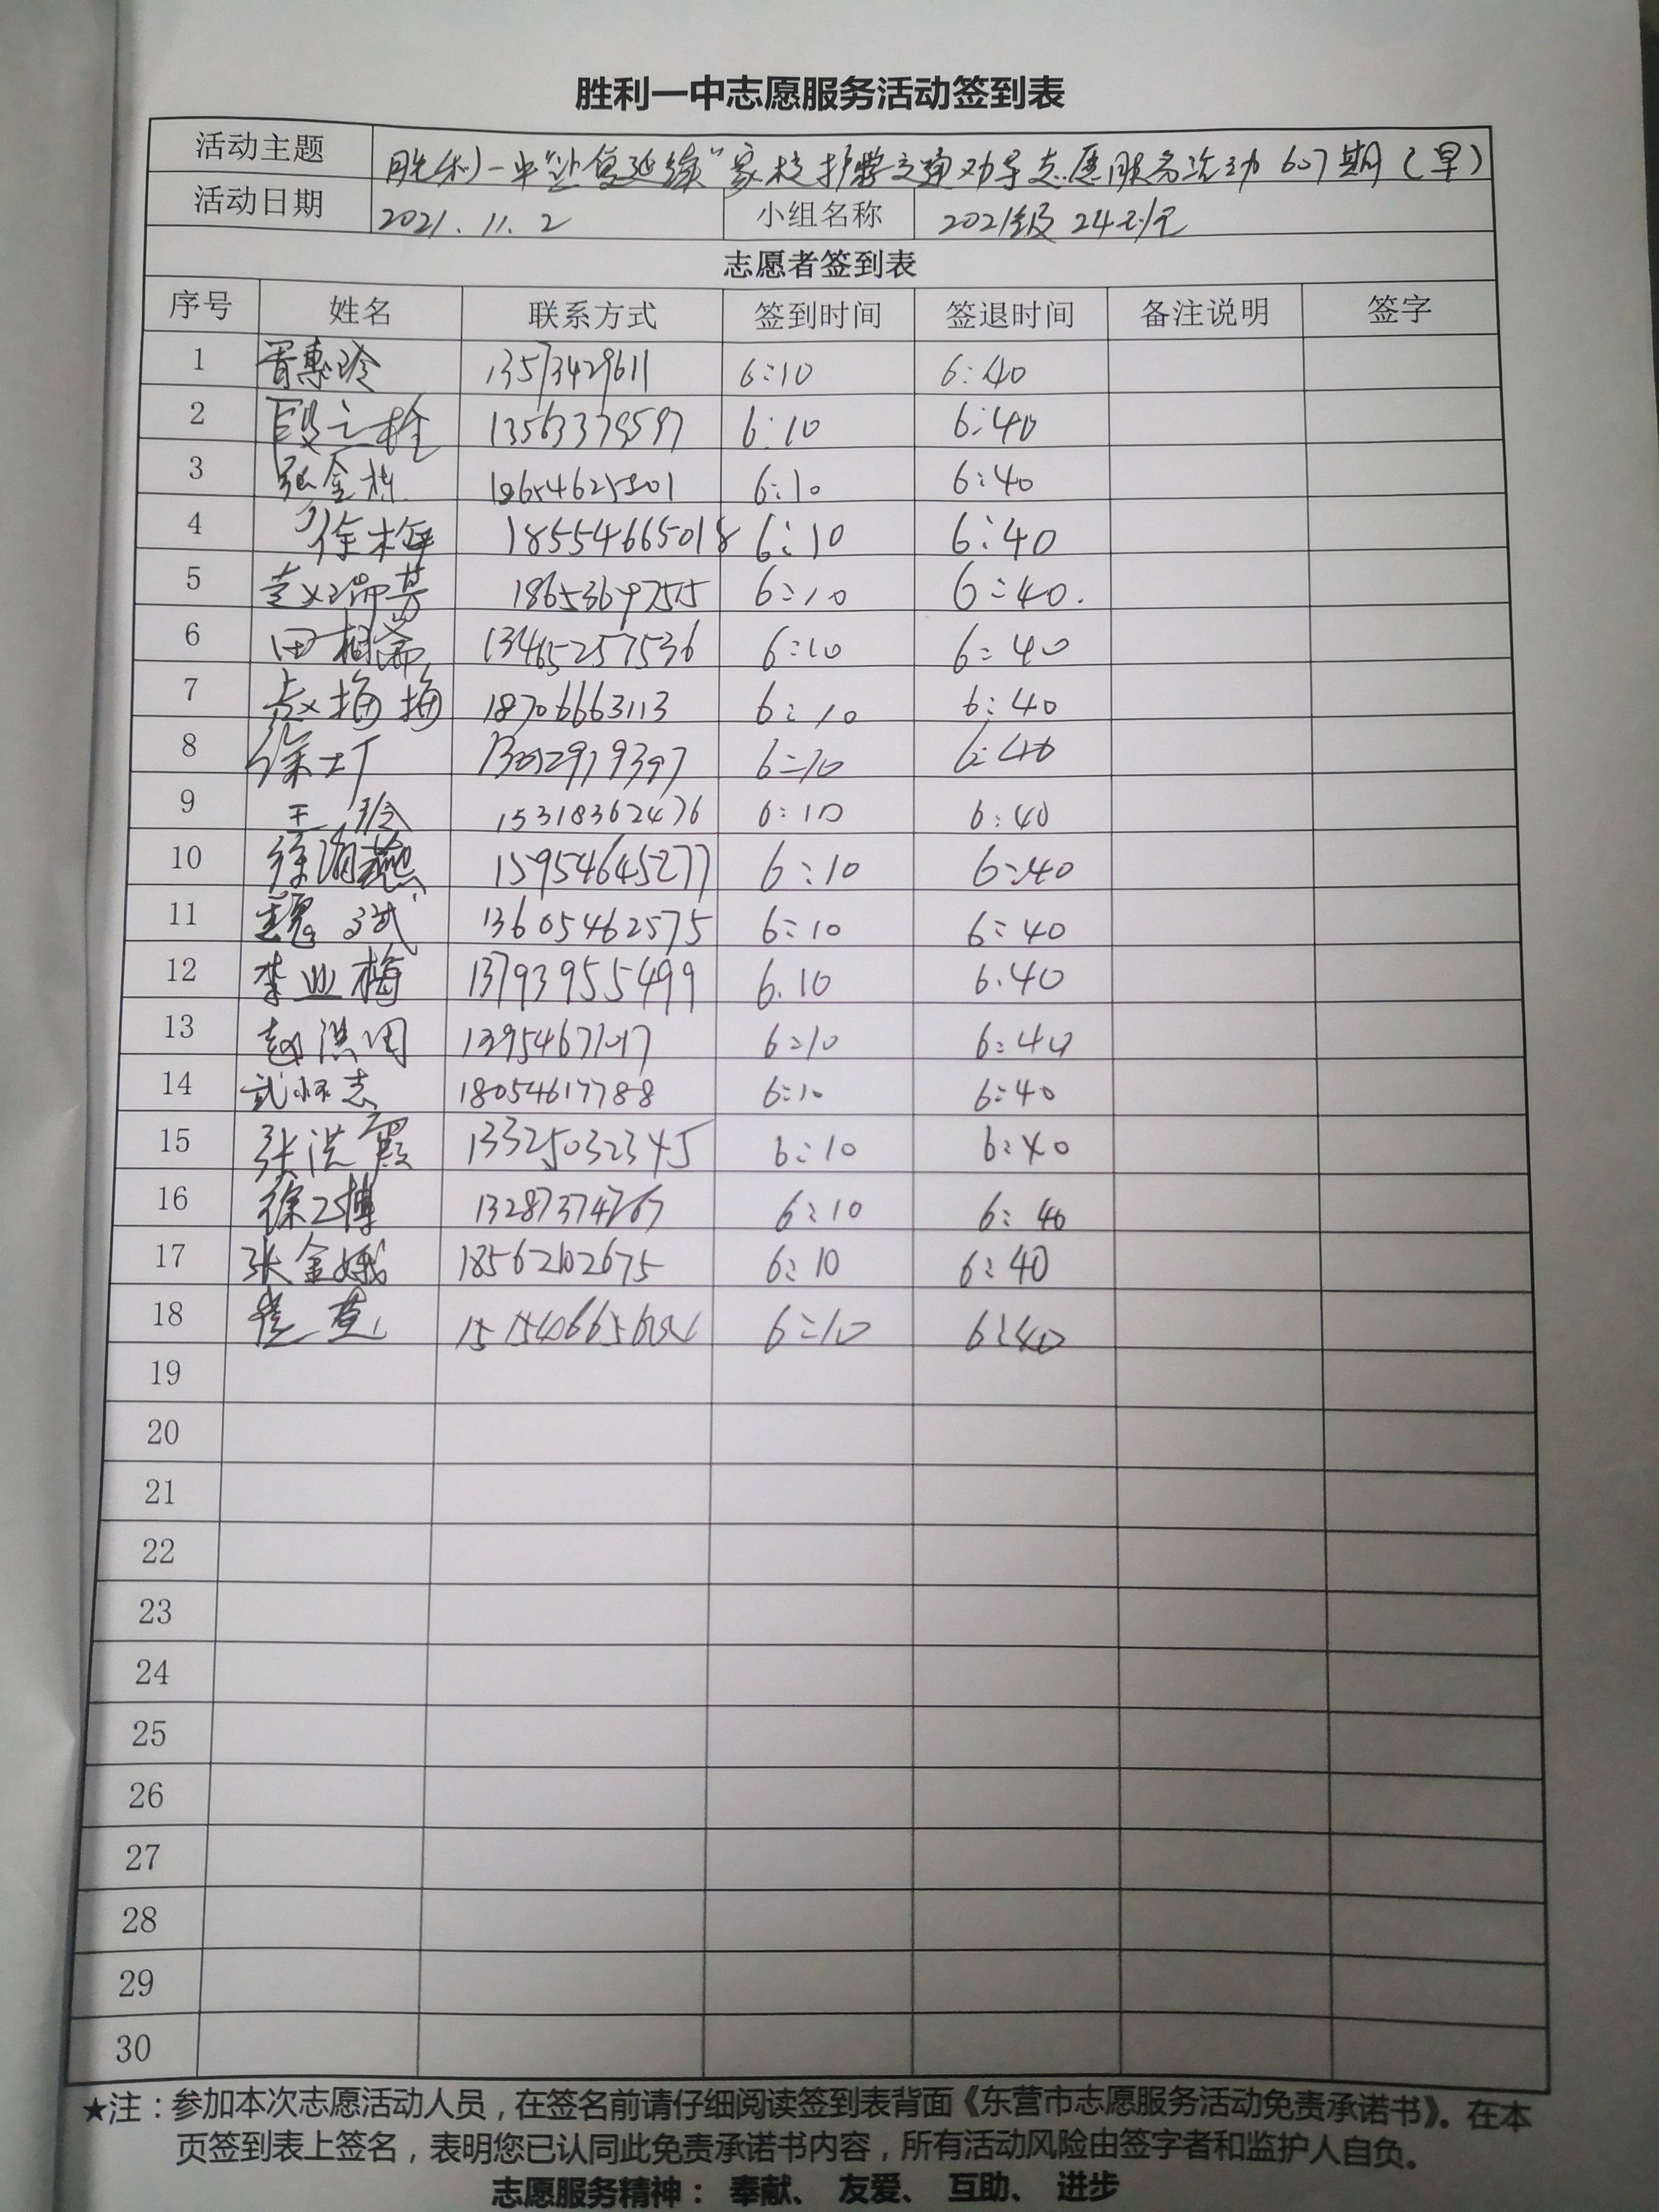 胜利一中志愿服务活动签到表
活动主题 胜利一中"让复延续"家校护学交通劝导志愿服务活动607期(早)
活动日期 2021.11.2 小组名称 2021级24
志愿者签到表
序号 姓名 联系方式 签到时间 签退时间 备注说明 签字
1 胥惠玲 13573429611 6:10 6:40
2 段之栓 6:10 6:40
3 张金栋 6:10 6:40
4 徐梅 18554665018 6:10 6:40
5 6:10 6:40.
6 田相 13465257536 6:10 6:40
7 赵梅梅 18706663113 6:10 6:40
8 徐 6:10 6:40
9 王玲 15318362476 6:10 6:40
10 徐湘燕 15954645277 6:10 6:40
11 魏斌 13605462575 6:10 6:40
12 李业梅 13793955499 6.10 6.40
13 赵洪国 6:10 6:40
14 武怀志 18054617788 6:10 6:40
15 张洪霞 13325032345 6:10 6:40
16 徐博 6:10 6:40
17 张金娥 18562102675 6:10 6:40
18 6:10 6:40
19
20
21
22
23
24
25
26
27
28
29
30
★注：参加本次志愿活动人员，在签名前请仔细阅读签到表背面《东营市志愿服务活动免责承诺书》。在本
页签到表上签名，表明您已认同此免责承诺书内容，所有活动风险由签字者和监护人自负。
志愿服务精神： 奉献、 友爱、 互助、 进步